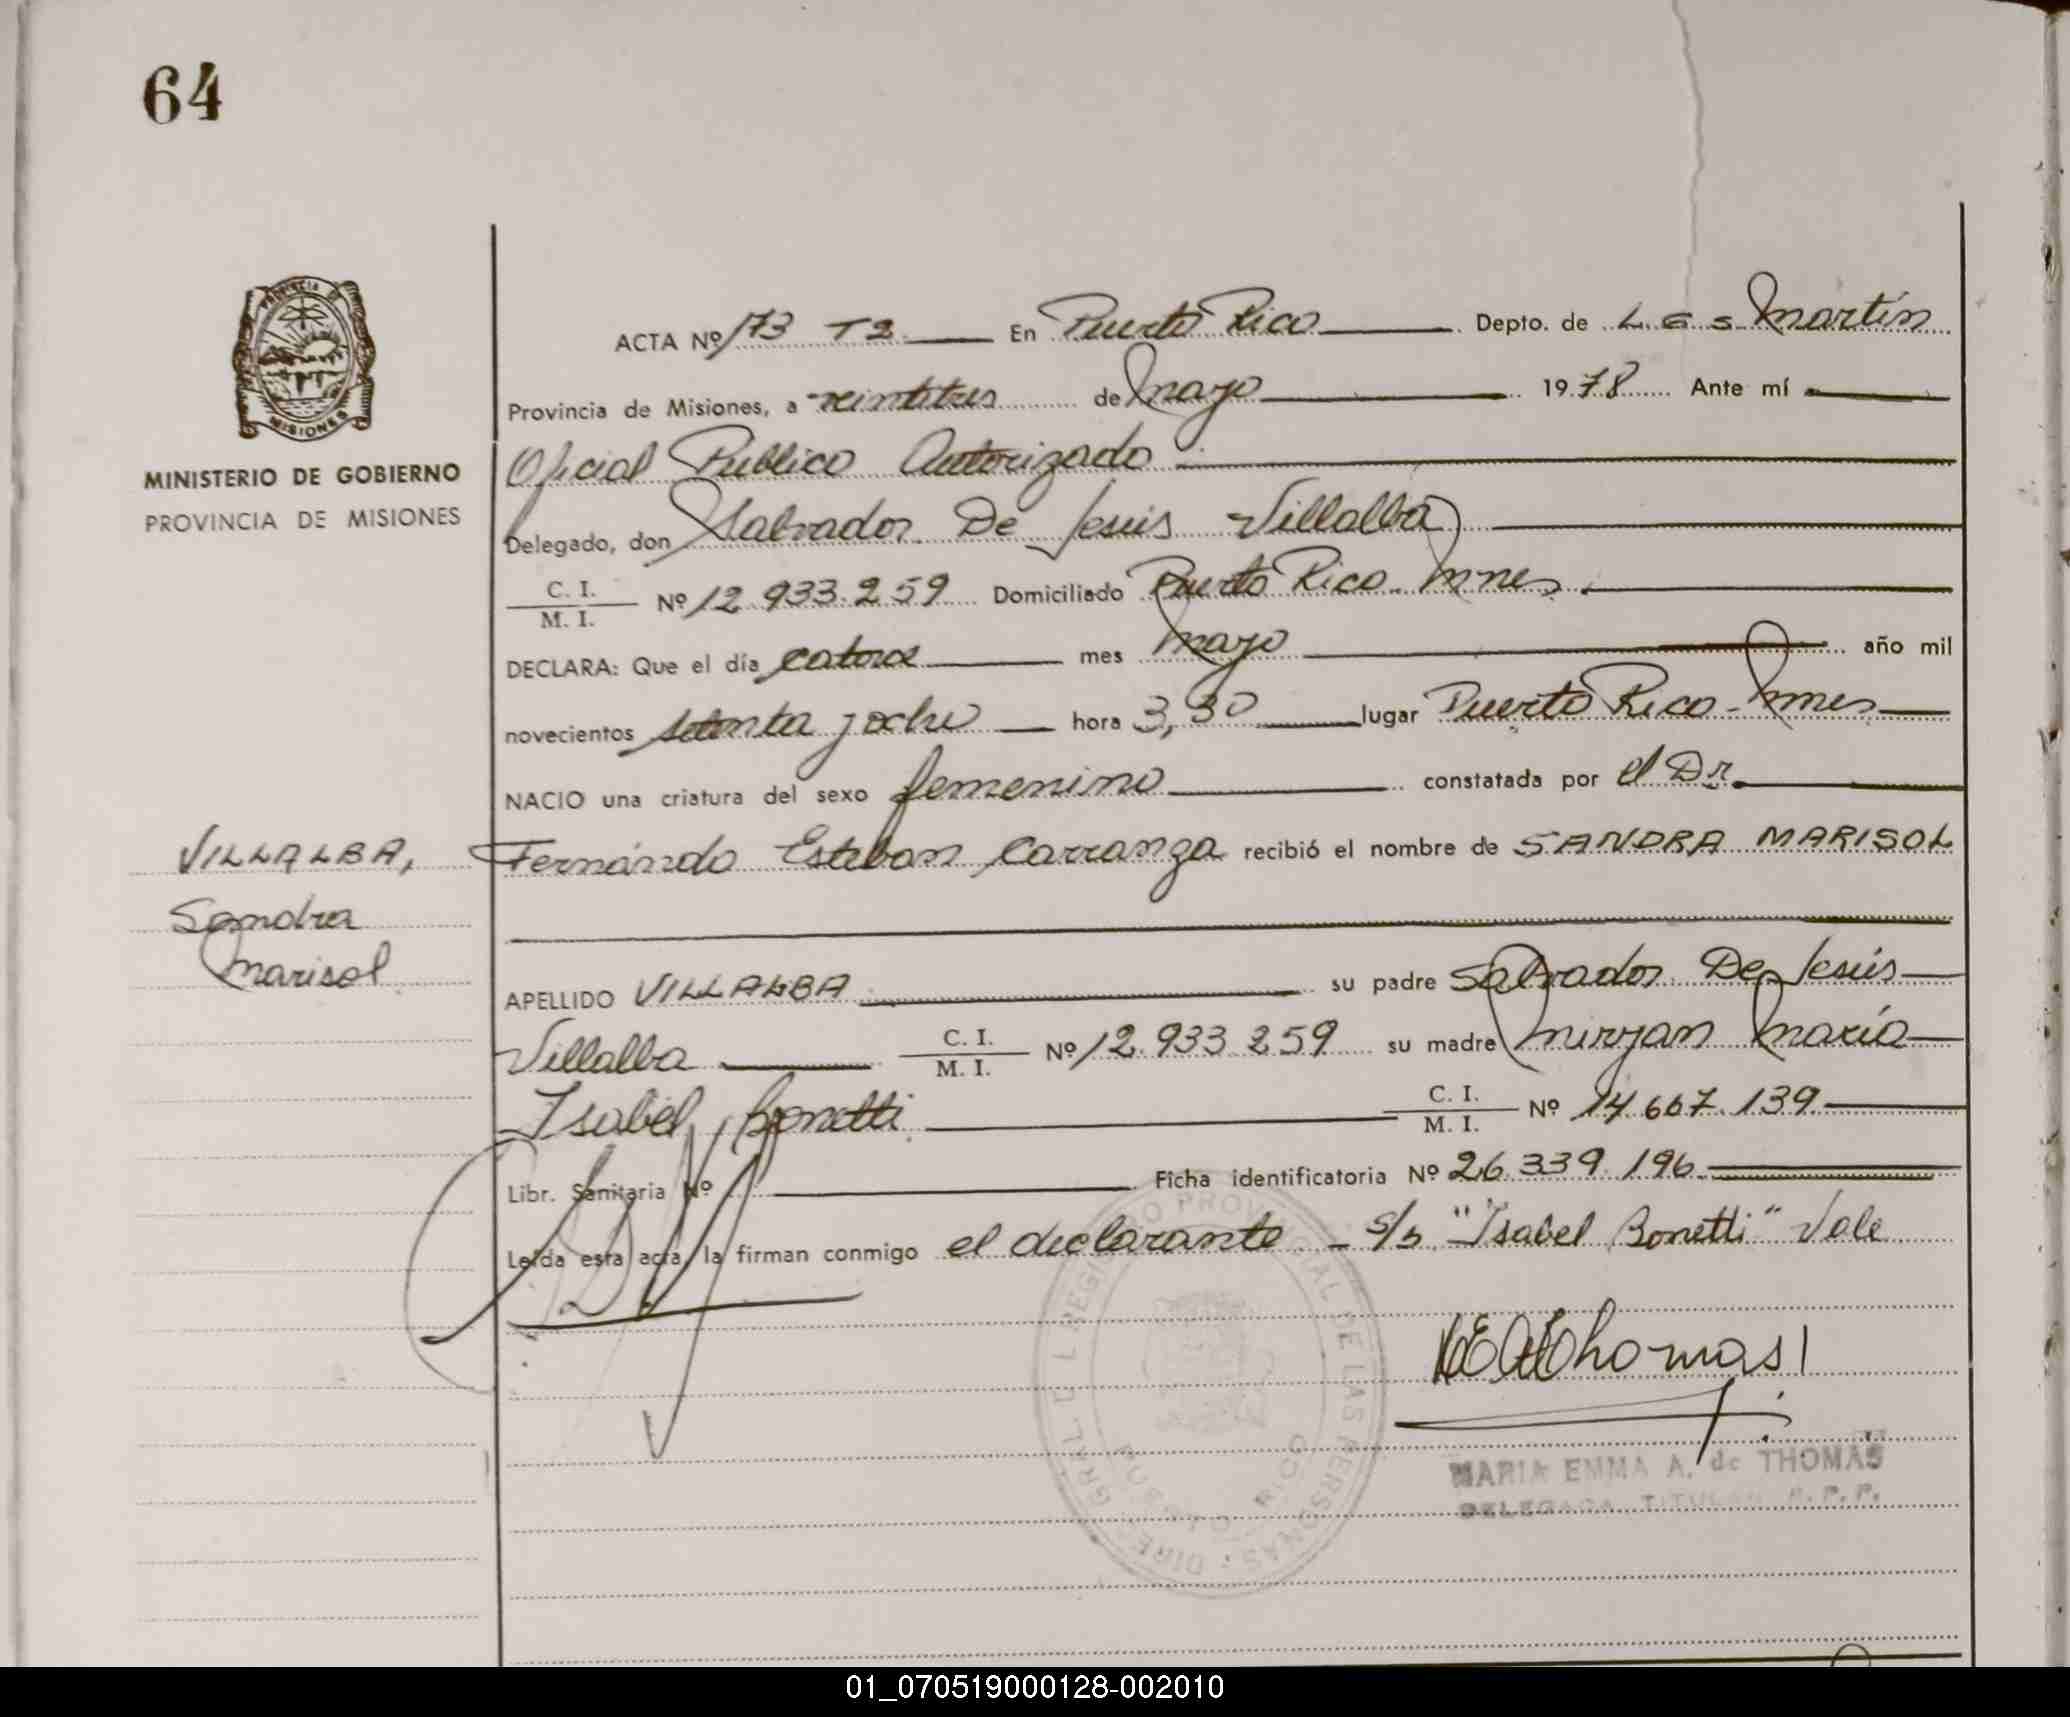 64
PROVINCIA DE
MISIONES
MINISTERIO DE GOBIERNO
PROVINCIA DE MISIONES
ACTA Nº 173 T2 En Puerto Rico Depto. de L. G. S. Martín
Provincia de Misiones, a veintitres de Mayo 1978 Ante mí
Oficial Publico Autorizado
Delegado, don Salvador De Jesús Villalba
C. I.
M. I. Nº 12.933.259 Domiciliado Puerto Rico. Mnes.
DECLARA: Que el día catorce mes Mayo año mil
novecientos setenta y ocho hora 3,30 lugar Puerto Rico - Mnes
NACIO una criatura del sexo femenino constatada por el Dr.
Fernándo Esteban Carranza recibió el nombre de SANDRA MARISOL
VILLALBA,
Sandra
Marisol
APELLIDO VILLALBA su padre Salvador De Jesús
Villalba C. I.
M. I. Nº 12.933.259 su madre Miryan María
Isabel Bonetti C. I.
M. I. Nº 14.667.139
Libr. Sanitaria Nº Ficha identificatoria Nº 26.339.196
Leída esta acta, la firman conmigo el declarante - S/b "Isabel Bonetti" Vale
Thomas
MARIA EMMA A. de THOMAS
DELEGADA TITULAR R. P. P.
DIREC. GRAL. DEL REGISTRO PROVINCIAL DE LAS PERSONAS
PUERTO RICO
01_070519000128-002010